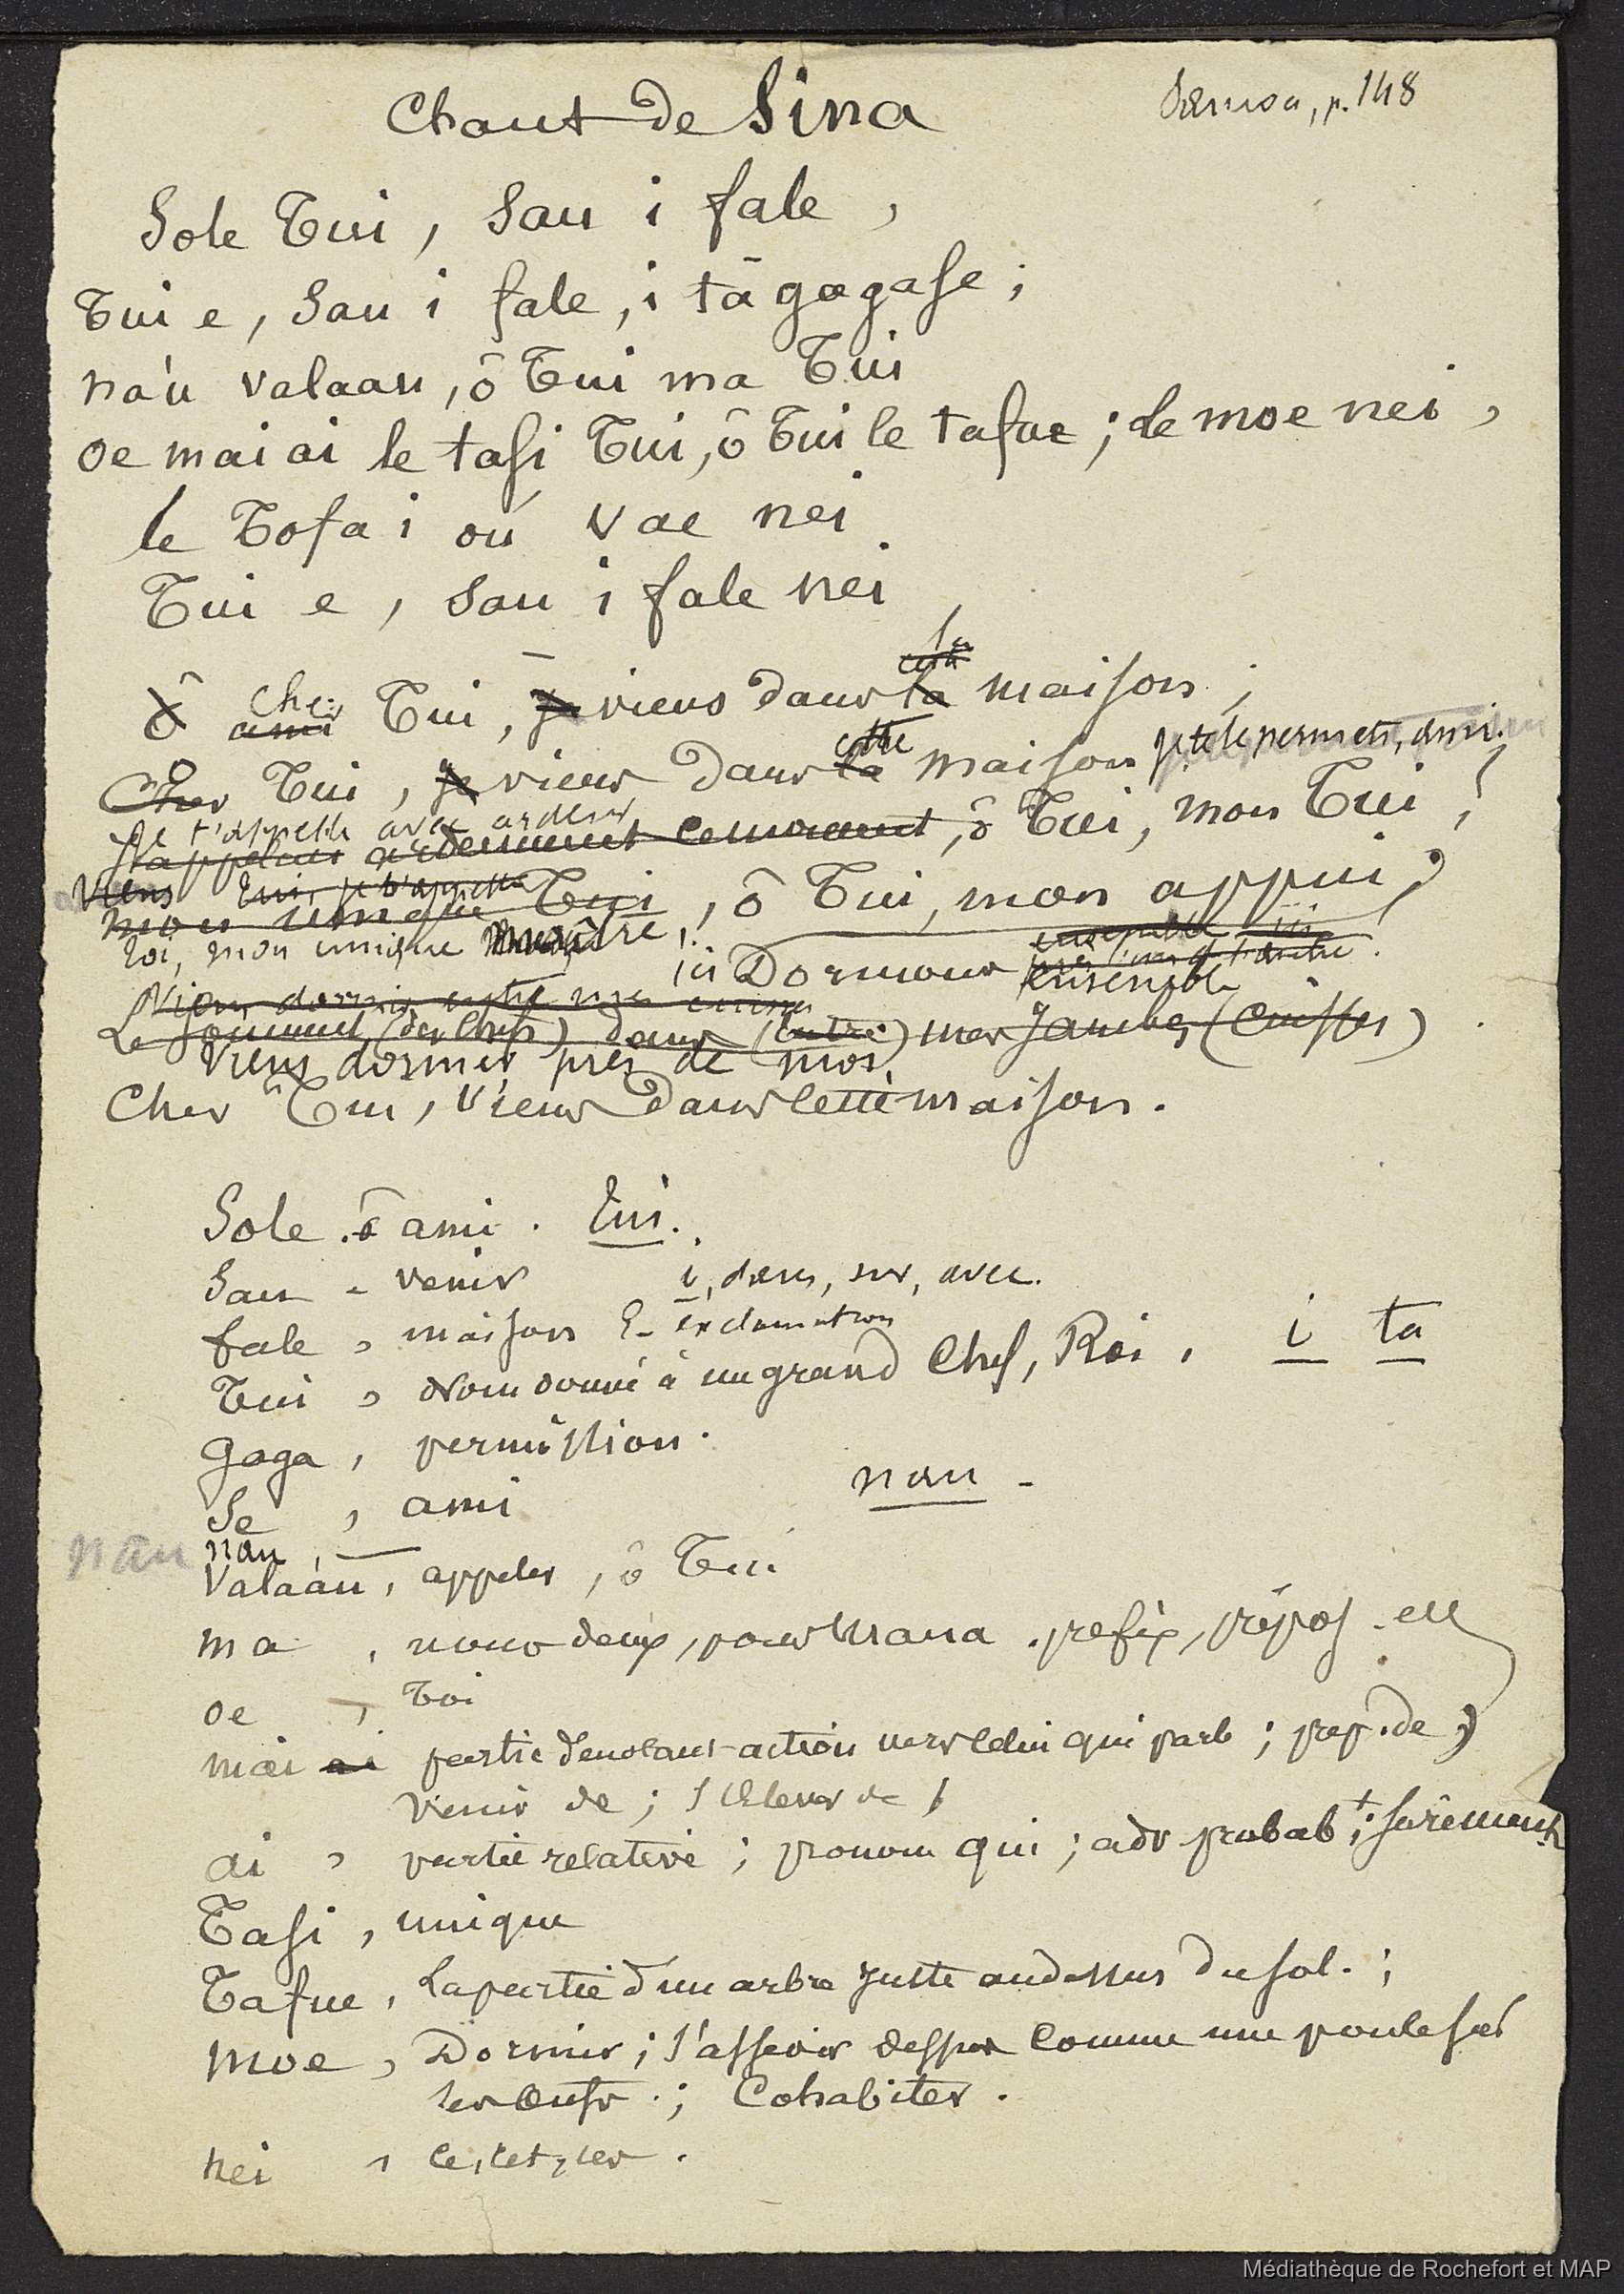 Chant de Sina
Samoa, p. 148
Sole Tui, Sau i fale,
Tui e, Sau i fale, i tā gagase;
na'u valaau, ô Tui ma Tui
oe mai ai le tasi Tui, ô Tui le tafue; le moe nei,
le Tofa i oú vae nei
Tui e, Sau i fale nei
la
cette
ô ami cher Tui, je viens dans la maison;
cette
Cher ô Tui, je viens dans la maison je te le permets, ami.
Je t'appelle avec ardeur
ardemment, ô Tui, mon Tui;
Viens Tui, je t'appelle
mon unique Tui, ô Tui, mon appui;
Toi, mon unique
ensemble ici
ici Dormons ensemble
Viens dormir
Le sommeil (des chefs) dans (entre) mes Jambes (Cuisses)
Viens dormir près de moi.
Cher Tui, Viens dans cette maison.
Sole . ô ami . Tui.
Sau - venir i, dans, sur, avec.
fale, maison E- exclamation
Tui, Nom donné à un grand Chef, Roi, i ta
gaga, permission.
Se, ami nau -
nau nau, —
Valaáu, appeler, ô Tui
ma, nous deux, pour Maua . prefix, prépos. et
oe, Toi
mai ai partie denotant action vers celui qui parle; prep. de,
Venir de; S'élever de
ai, partie relative; pronom qui; adv probabt; sûrement
Tasi, unique
Tafue, La partie d'un arbre Juste au dessus du sol.;
moe, Dormir; S'asseoir dessus comme une poule sur
les œufs.; Cohabiter.
nei, ce, cet, ces.
Médiathèque de Rochefort et MAP